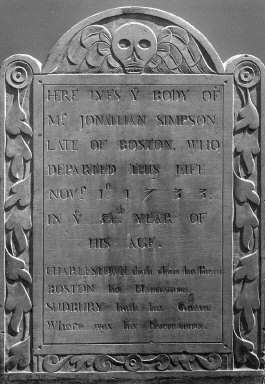 HERE LYES Yᵉ BODY OF
Mʳ. JONATHAN SIMPSON
LATE OF BOSTON, WHO
DEPARTED THIS LIFE
NOVʳ. 1ˢᵗ. 1733;
IN Yᵉ YEAR OF
HIS AGE.
CHARLESTOWN doth his Birth
BOSTON his
SUDBURY hath his
Where was his